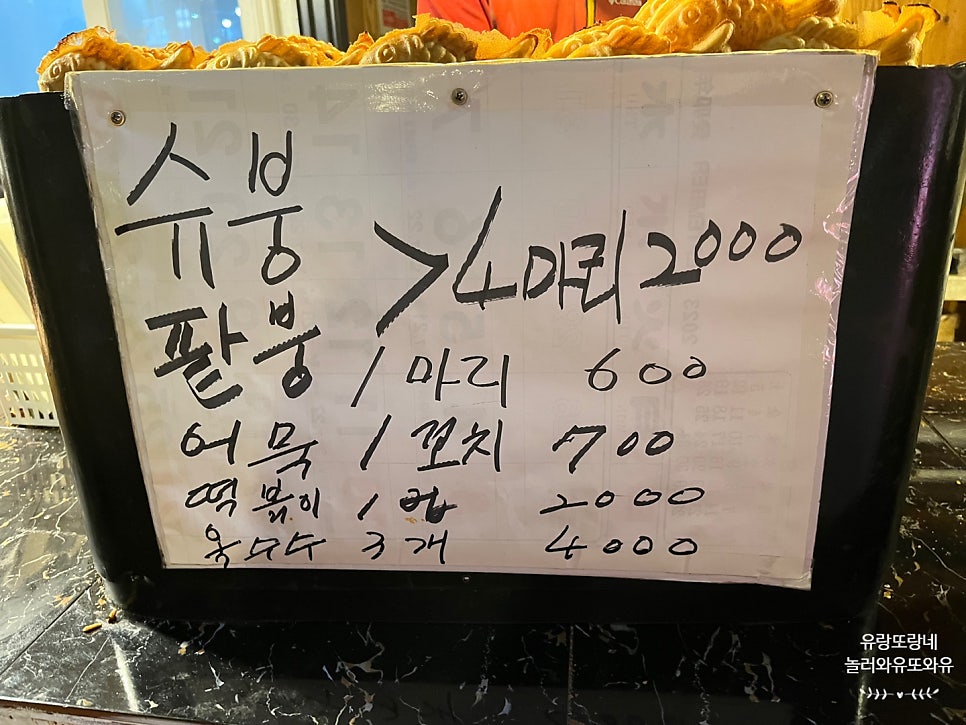 슈붕
팥붕 > 4마리 2000
1마리 600
어묵 1꼬치 700
떡볶이 1컵 2000
옥수수 3개 4000
유랑또랑네
놀러와유또와유